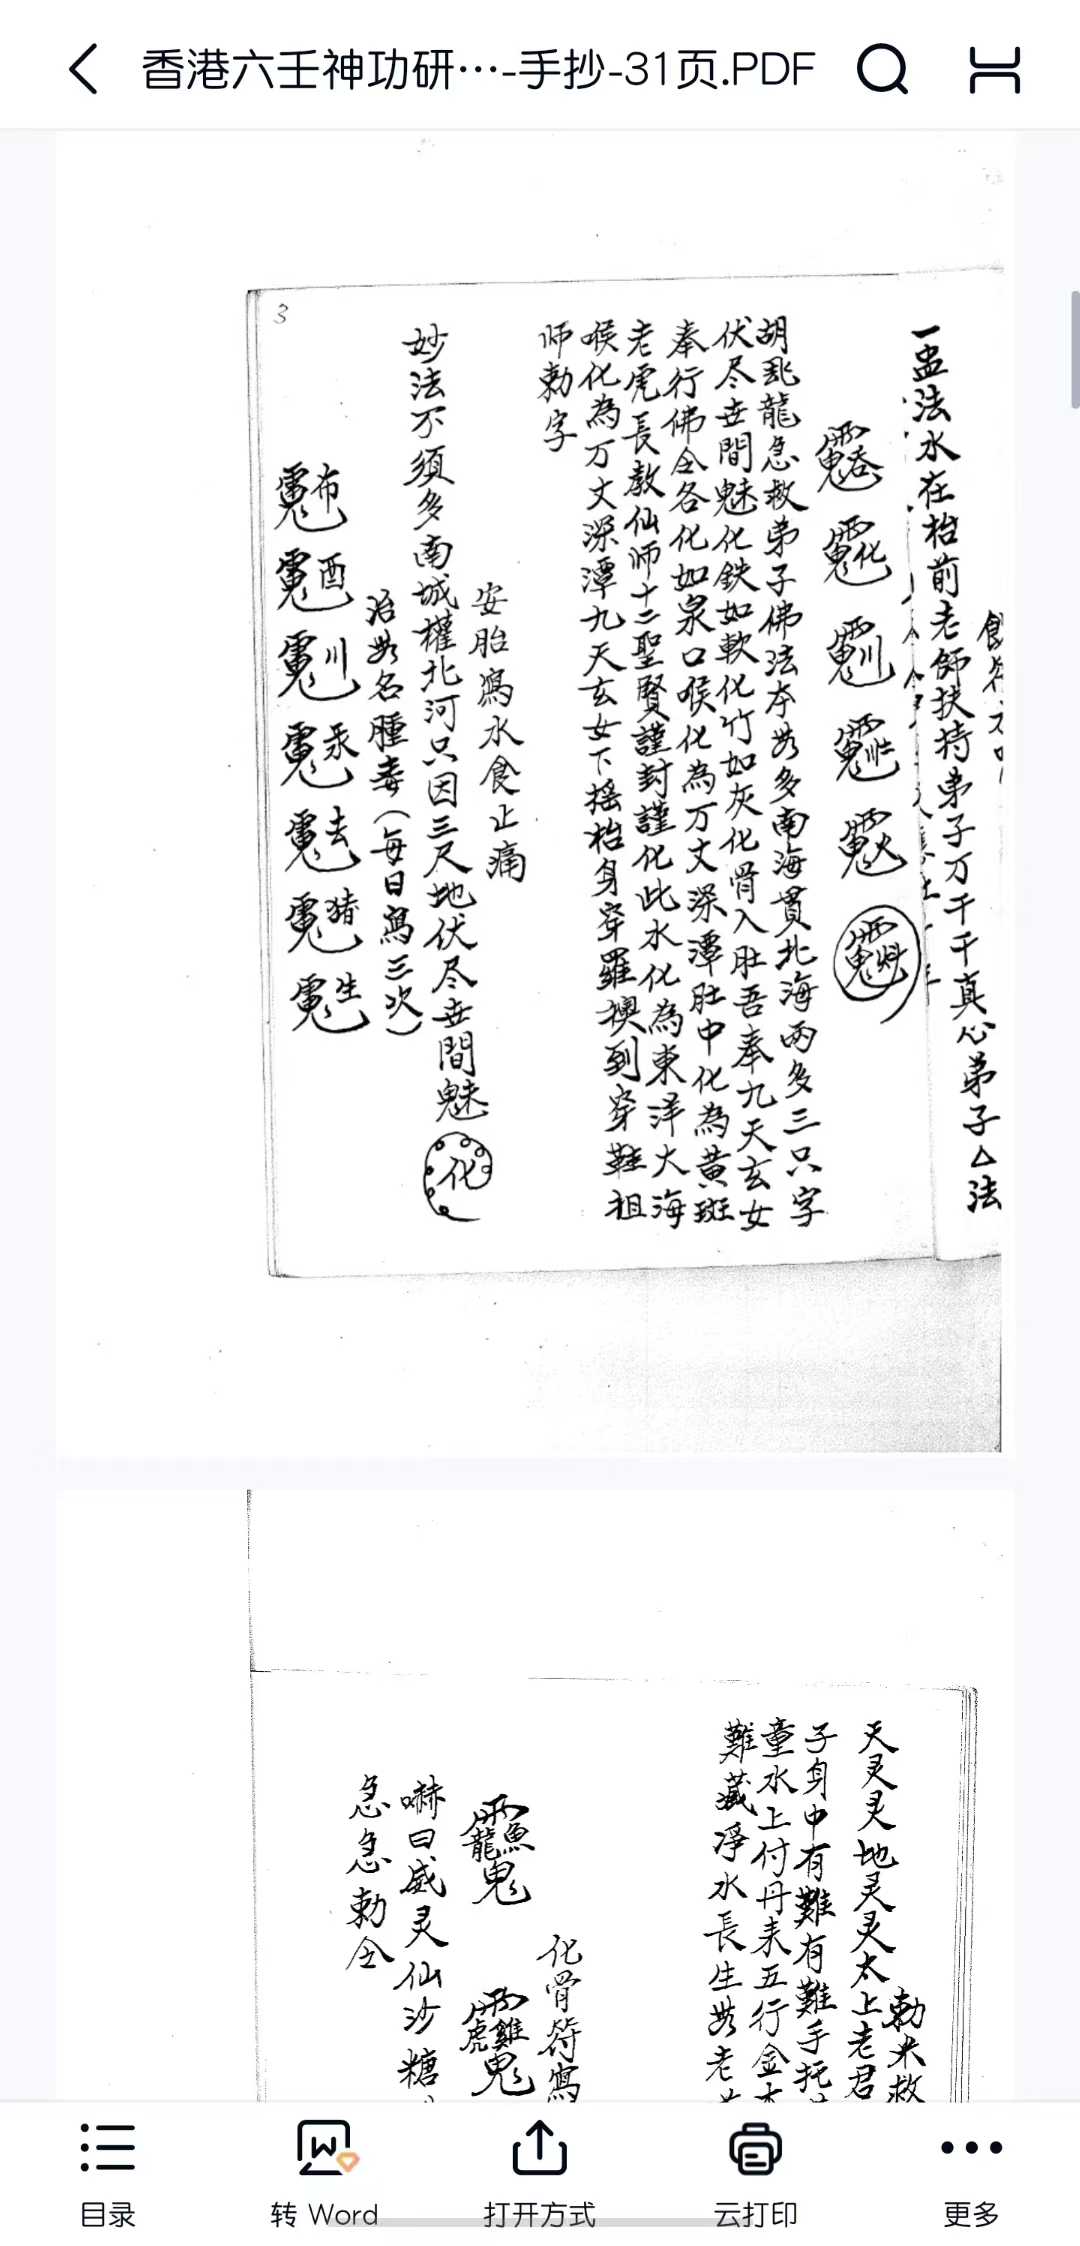 香港六壬神功研…-手抄-31页.PDF
3
一盅法水在枱前老師扶持弟子万千千真心弟子△法
胡 龍急救弟子佛法本无多南海貫北海两多三只字
伏尽世間魅化鉄如軟化竹如灰化骨入肚吾奉九天玄女
奉行佛令各化如泉口喉化為万丈深潭肚中化為黄斑
老虎長教仙师十二聖賢謹封謹化此水化為東洋大海
喉化為万丈深潭九天玄女下摇枱身穿羅 到穿鞋祖
师勅字
安胎寫水食止痛
妙法不須多南城權北河只因三尺地伏尽世間魅
化
治无名腫毒（每日寫三次）
勅米救
天灵灵地灵灵太上老君
子身中有難有難手托
童水上付丹来五行金木
難藏淨水長生无老
化骨符寫
嚇曰威灵仙沙糖
急急勅令
目录
转 Word
打开方式
云打印
更多